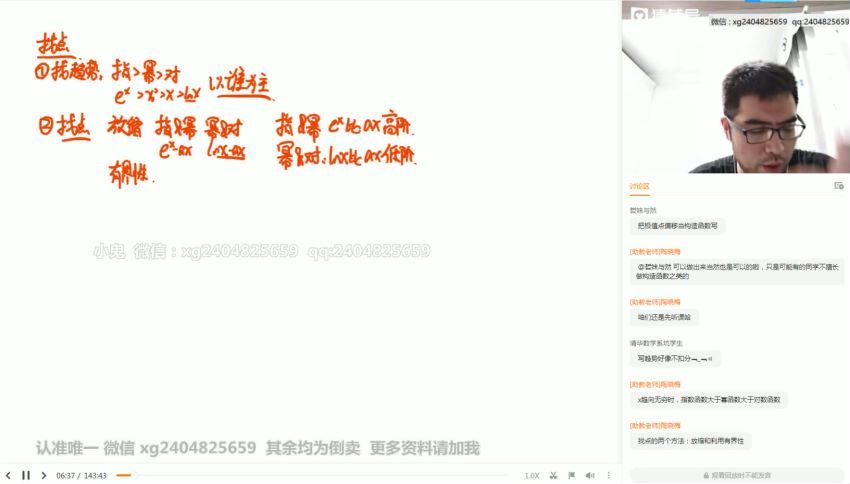 找点
①找趋势, 指>幂>对 以谁为主
eˣ>x²>x>lnx
②找点 放缩 指+幂 幂+对 指+幂 eˣ比ax高阶.
eˣ-ax lnx-ax 幂+对: lnx比ax低阶.
有界性.
小鬼 微信：xg2404825659 qq:2404825659
认准唯一 微信 xg2404825659 其余均为倒卖 更多资料请加我
06:37 / 143:43
1.0X
猿辅导
微信：xg2404825659 qq:2404825659
讨论区
碧妹与然
把极值点偏移当构造函数写
[助教老师]陶晓梅
@碧妹与然 可以做出来当然也是可以的啦，只是可能有的同学不擅长做构造函数之类的
[助教老师]陶晓梅
咱们还是先听课哈
清华数学系坑学生
写趋势好像不扣分¬_¬
[助教老师]陶晓梅
x趋向无穷时，指数函数大于幂函数大于对数函数
[助教老师]陶晓梅
找点的两个方法：放缩和利用有界性
观看回放时不能发言